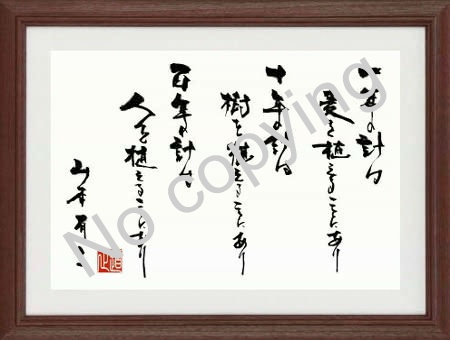 一年の計は
麦を植えることにあり
十年の計は
樹を植えることにあり
百年の計は
人を植えることにあり
山本有二
No copying